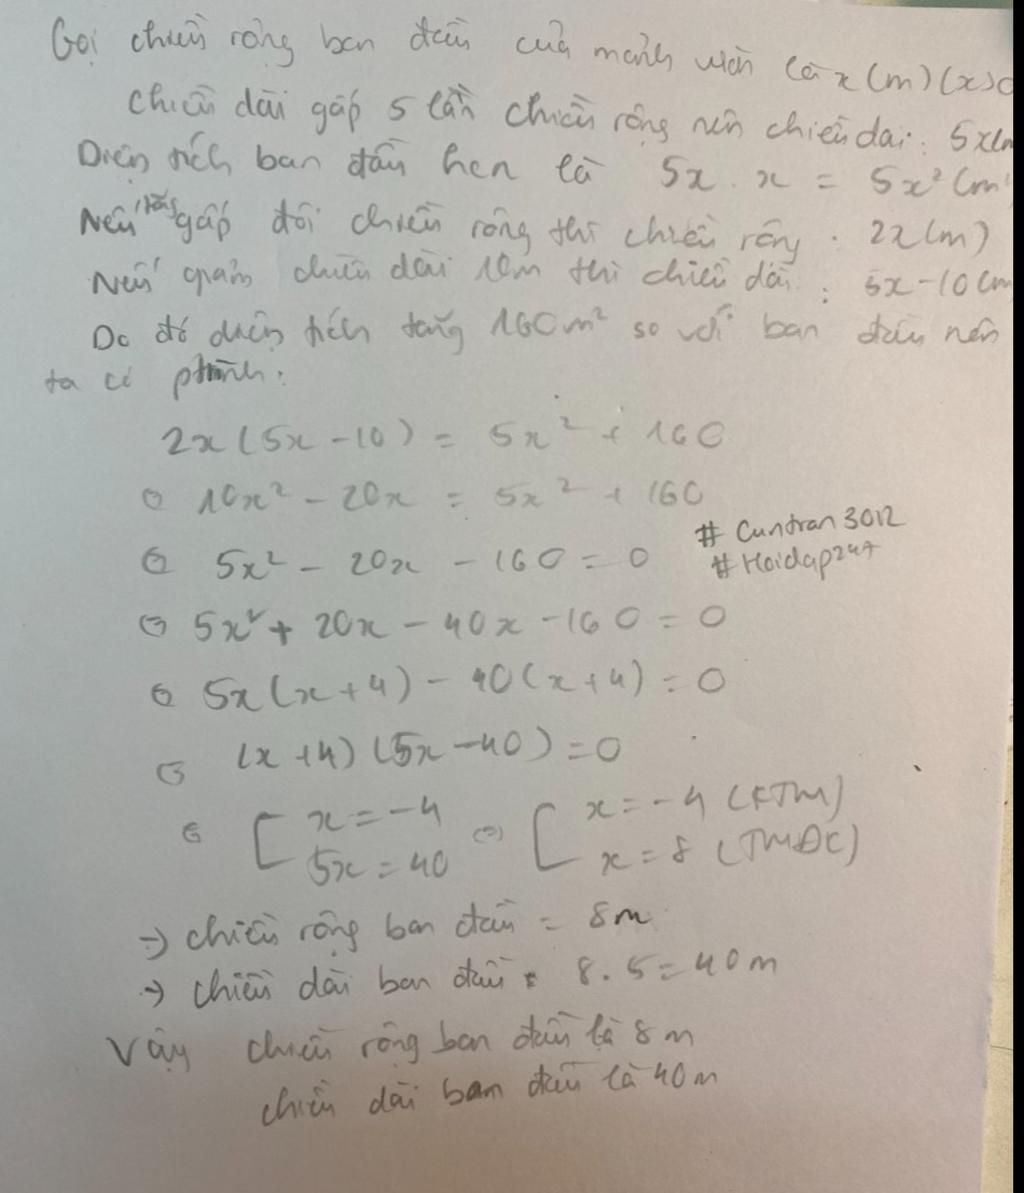 Gọi chiều rộng ban đầu của mảnh vườn là x (m) (x>0
chiều dài gấp 5 lần chiều rộng nên chiều dai: 5x(m
Diện tích ban đầu hcn là 5x . x = 5x² (m²
Nếu tăng gấp đôi chiều rộng thì chiều rộng : 2x(m)
Nếu giảm chiều dài 10m thì chiều dài : 5x-10 (m
Do đó diện tích tăng 160m² so với ban đầu nên
ta có ptrình:
2x(5x-10) = 5x² + 160
⇔ 10x² - 20x = 5x² + 160
⇔ 5x² - 20x - 160 = 0
# Cuntran3012
# Hoidap247
⇔ 5x² + 20x - 40x - 160 = 0
⇔ 5x(x+4) - 40(x+4) = 0
⇔ (x+4)(5x-40) = 0
⇔ [ x = -4 ⇔ [ x = -4 (KTM)
5x = 40 x = 8 (TMĐK)
→ chiều rộng ban đầu = 8m
→ chiều dài ban đầu = 8.5=40m
Vậy chiều rộng ban đầu là 8m
chiều dài ban đầu là 40m